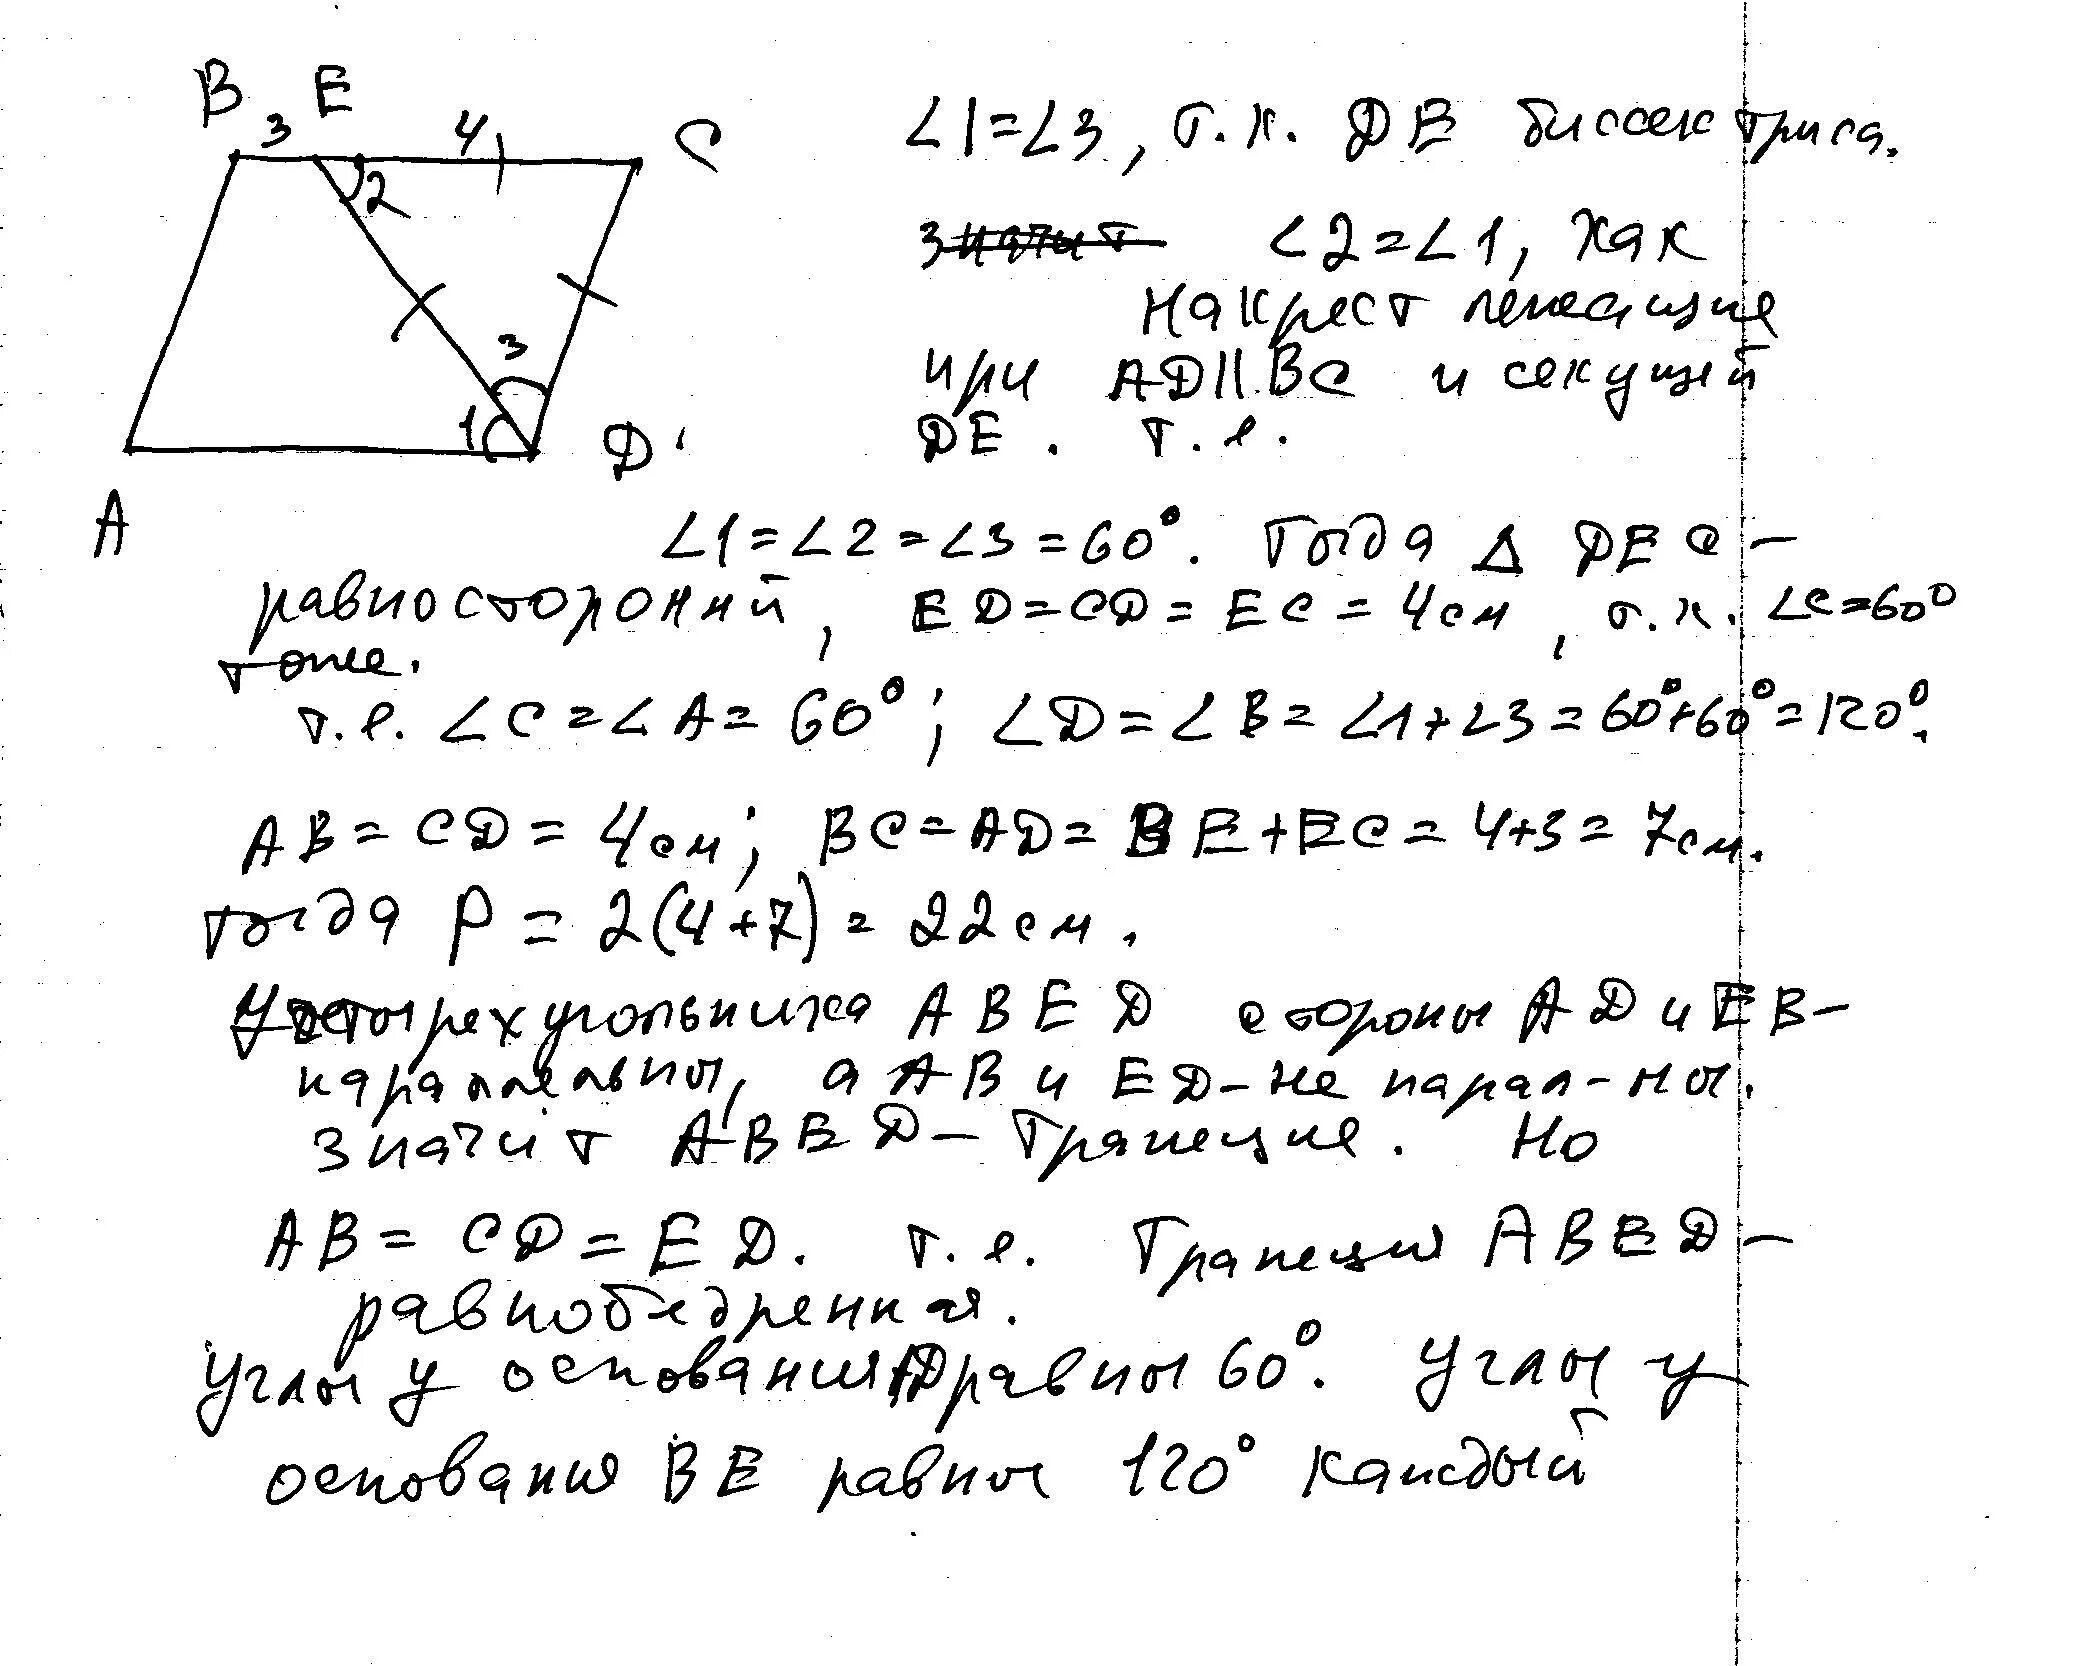 B E
3 4 C
2
3
1 D
A
∠1=∠3, т.к. DE биссектриса.
значит ∠2=∠1, как
накрест лежащие
при AD||BC и секущей
DE. т.е.
∠1=∠2=∠3=60°. Тогда Δ DEC –
равносторонний, ED=CD=EC=4см, т.к. ∠C=60°
тоже.
т.е. ∠C=∠A=60°; ∠D=∠B=∠1+∠3=60°+60°=120°.
AB=CD=4см; BC=AD=BE+EC=4+3=7см.
тогда P=2(4+7)=22см.
Четырехугольника ABED стороны AD и EB –
параллельны, а AB и ED – не парал-ны.
значит ABED – Трапеция. Но
AB=CD=ED. т.е. Трапеция ABED –
равнобедренная.
Углы у основания AD равны 60°. Углы у
основания BE равны 120° каждый